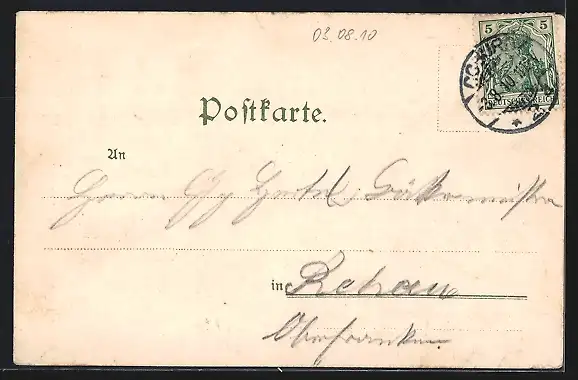 03.08.10
5 5
DEUTSCHES REICH
Postkarte.
An
Herrn Hertel, Bäckermeister
in Rehau
Oberfranken